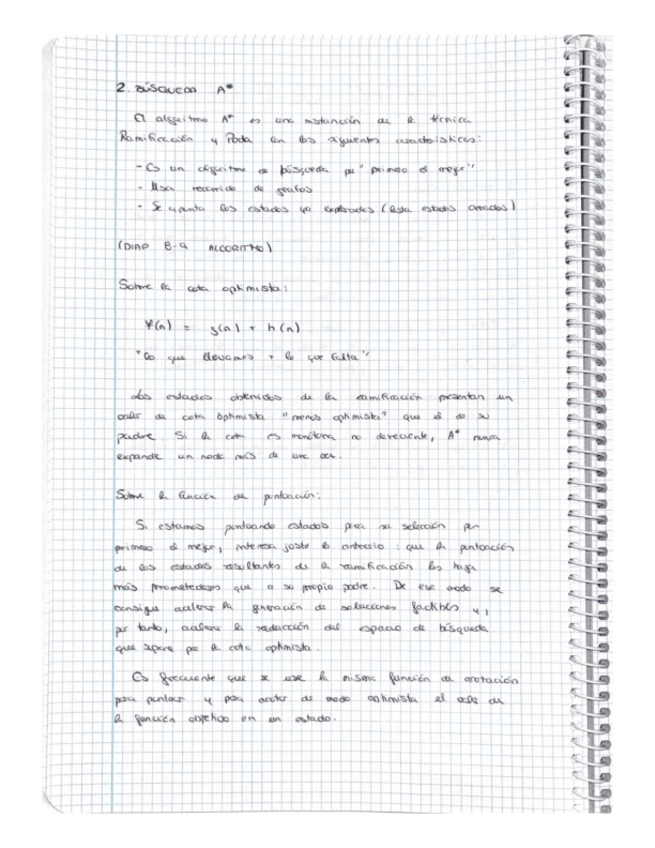 2. BÚSQUEDA A*
El algoritmo A* es una instanción de la técnica
Ramificación y Poda con las siguientes características:
- Es un algoritmo de búsqueda por "primero el mejor"
- Usa recorrido de grafos
- Se apunta los estados ya explorados (lista estados cerrados)
(DIAP 8-9 ALGORITMO)
Sobre la cota optimista:
Ψ(n) = g(n) + h(n)
"lo que llevamos + lo que falta"
Los estados obtenidos de la ramificación presentan un
valor de cota optimista "menos optimista" que el de su
padre. Si la cota es monótona no decreciente, A* nunca
expande un nodo más de una vez.
Sobre la función de puntuación:
Si estamos puntuando estados para su selección por
primero el mejor, interesa justo lo contrario: que la puntuación
de los estados resultantes de la ramificación los haga
más prometedores que a su propio padre. De ese modo se
consigue acelerar la generación de soluciones factibles y,
por tanto, acelerar la reducción del espacio de búsqueda
que supone por la cota optimista.
Es frecuente que se use la misma función de acotación
para puntuar y para acotar de modo optimista el valor de
la función objetivo en un estado.